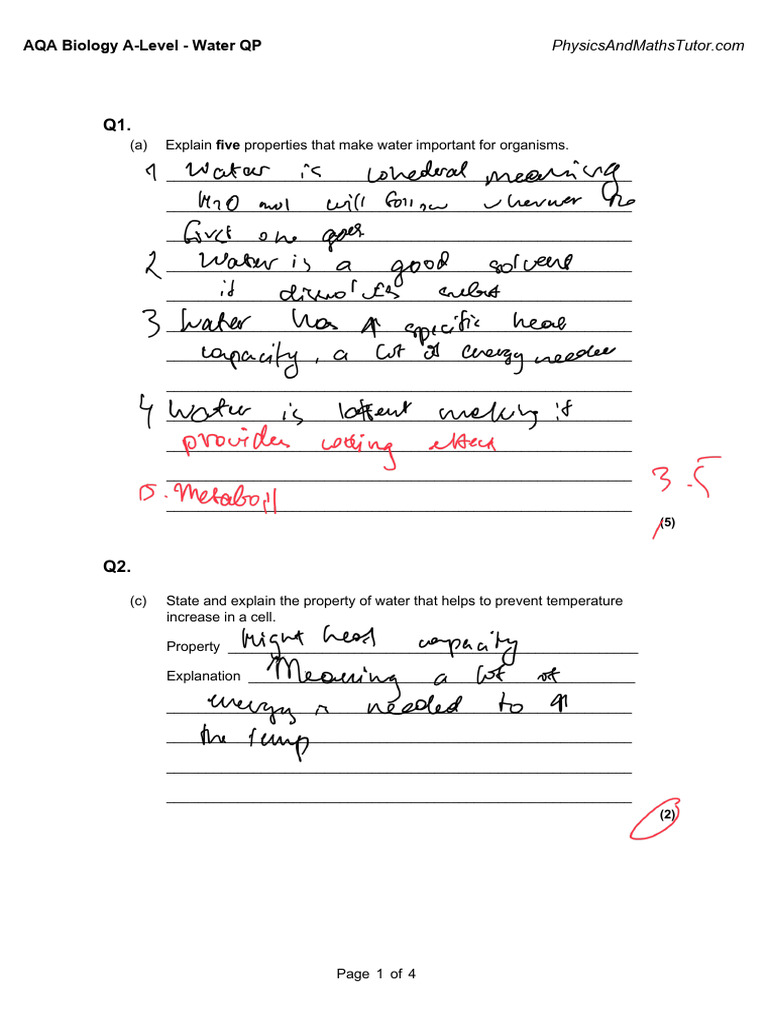 AQA Biology A-Level - Water QP
PhysicsAndMathsTutor.com
Q1.
(a) Explain five properties that make water important for organisms.
1 Water is cohederal meaning
H2O mol will follow wherever the
first one goes
2 Water is a good solvent
it dissolves
3 Water has ↑ specific heat
capacity, a lot of energy needed
4 Water is latent making it
provides cooling effect
5. Metaboil
3.5
(5)
Q2.
(c) State and explain the property of water that helps to prevent temperature
increase in a cell.
Property hight heat capacity
Explanation Meaning a lot of
energy is needed to ↑
the temp
(2)
Page 1 of 4